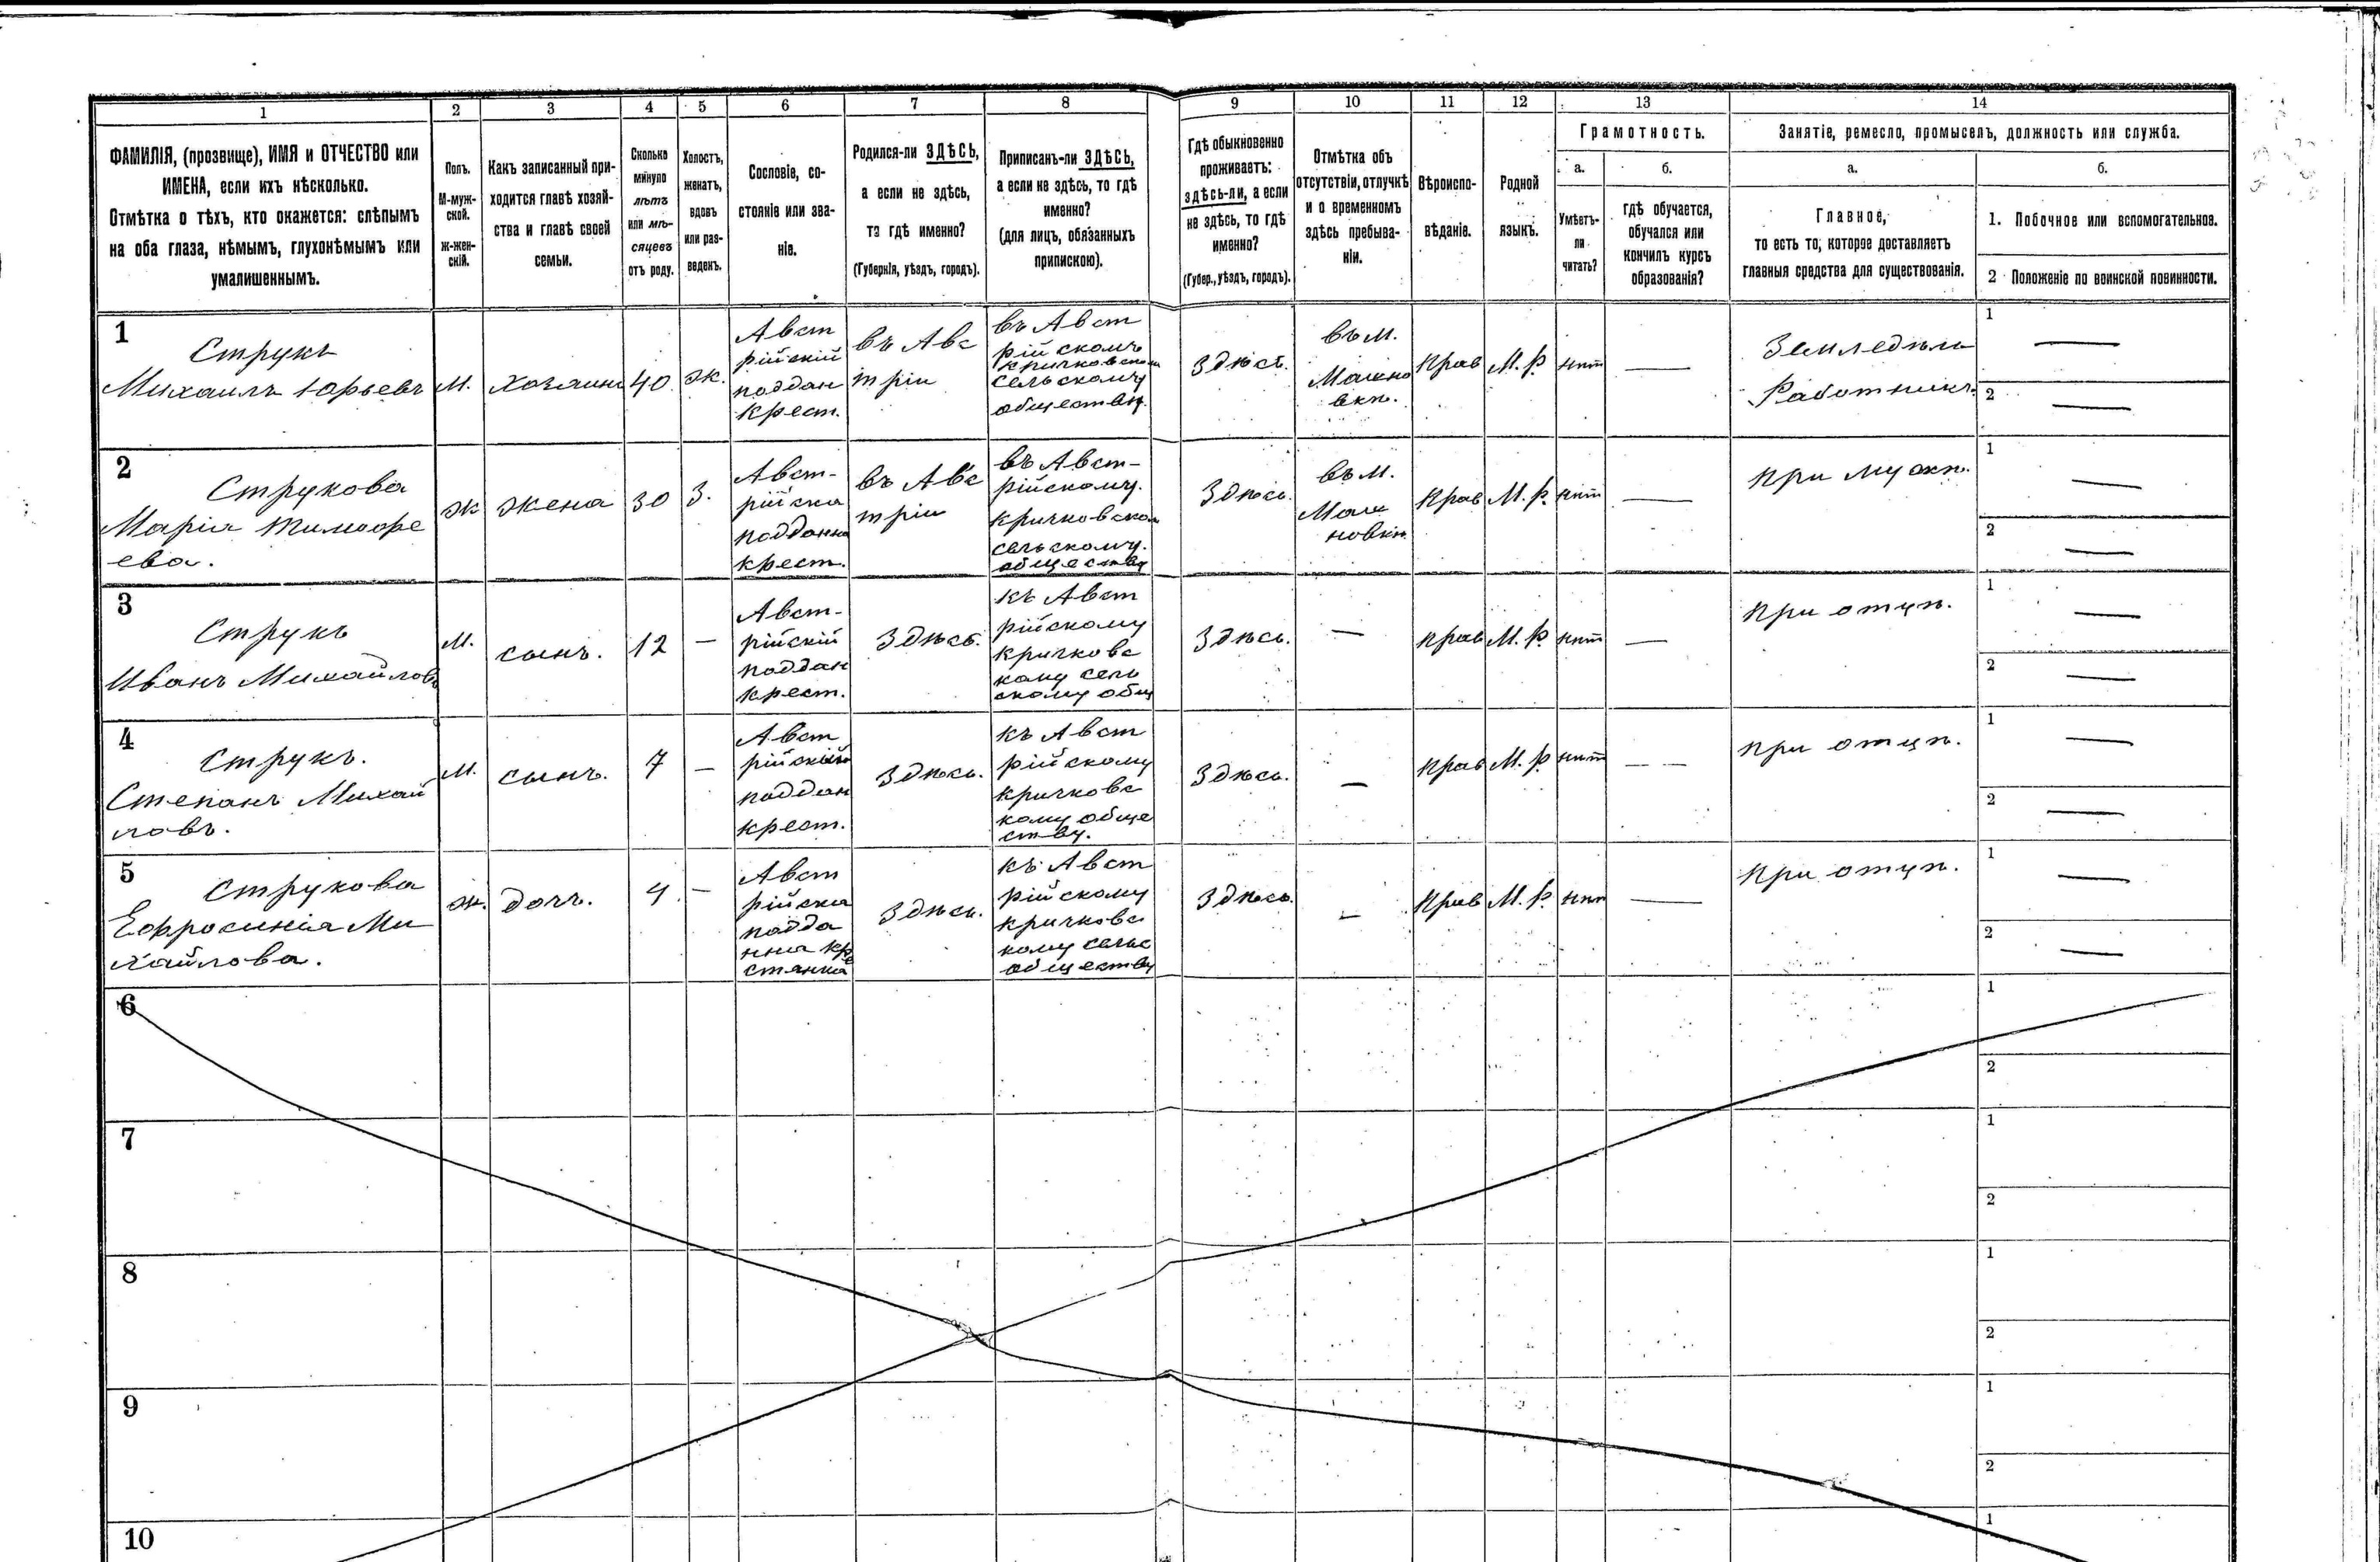 1 2 3 4 5 6 7 8 9 10 11 12 13 14
ФАМИЛІЯ, (прозвище), ИМЯ и ОТЧЕСТВО или
ИМЕНА, если ихъ нѣсколько.
Отмѣтка о тѣхъ, кто окажется: слѣпымъ
на оба глаза, нѣмымъ, глухонѣмымъ или
умалишеннымъ.
Полъ.
М-муж-
ской.
Ж-жен-
скій.
Какъ записанный при-
ходится главѣ хозяй-
ства и главѣ своей
семьи.
Сколько
минуло
лѣтъ
или мѣ-
сяцевъ
отъ роду.
Холостъ,
женатъ,
вдовъ
или раз-
веденъ.
Сословіе, со-
стояніе или зва-
ніе.
Родился-ли ЗДѢСЬ,
а если не здѣсь,
то гдѣ именно?
(Губернія, уѣздъ, городъ).
Приписанъ-ли ЗДѢСЬ,
а если не здѣсь, то гдѣ
именно?
(для лицъ, обязанныхъ
припискою).
Гдѣ обыкновенно
проживаетъ:
здѣсь-ли, а если
не здѣсь, то гдѣ
именно?
(Губер., уѣздъ, городъ).
Отмѣтка объ
отсутствіи, отлучкѣ
и о временномъ
здѣсь пребыва-
ніи.
Вѣроиспо-
вѣданіе.
Родной
языкъ.
Грамотность.
а.
Умѣетъ-
ли
читать?
б.
гдѣ обучается,
обучался или
кончилъ курсъ
образованія?
Занятіе, ремесло, промыселъ, должность или служба.
а.
Главное,
то есть то, которое доставляетъ
главныя средства для существованія.
б.
1. Побочное или вспомогательное.
2 Положеніе по воинской повинности.
1
Струкъ
Михаилъ Юрьевъ
М.
хозяинъ
40
ж.
Авст
рійскій
поддан
крест.
въ Авс
тріи
въ Авст
рійскомъ
кричковском
сельскому
обществу
Здѣсь.
въ М.
Машно
вкѣ.
Прав
М. р
нѣт
Земледѣль
Работникъ.
1
2
2
Струкова
Марія Тимофе
ева.
ж
жена
30
З.
Авст-
рійска
поддонна
крест.
въ Авс
тріи
въ Авст-
рійскому.
кричковском
сельскому.
обществу
Здѣсь.
въ М.
Маш
новкѣ
Прав
М. р.
нѣт
при мужѣ.
1
2
3
Струкъ
Иванъ Михайловъ
М.
сынъ.
12
Авст-
рійскій
поддан
крест.
Здѣсь.
къ Авст
рійскому
кричковс
кому сель
скому общ
Здѣсь.
Прав
М. р.
нѣт
при отцѣ.
1
2
4
Струкъ.
Степанъ Михай
ловъ.
М.
сынъ.
7
Авст
рійскій
поддан
крест.
Здѣсь.
къ Авст
рійскому
кричковс
кому обще
ству.
Здѣсь.
Прав
М. р
нѣт
при отцѣ.
1
2
5
Струкова
Ефросинія Ми
хайлова.
ж.
дочь.
4
Авст
рійска
подда
нна кре
стянка
Здѣсь.
къ Авст
рійскому
кричковс
кому сельс
обществу
Здѣсь.
Прав
М. р.
нѣт
при отцѣ.
1
2
6
1
2
7
1
2
8
1
2
9
1
2
10
1